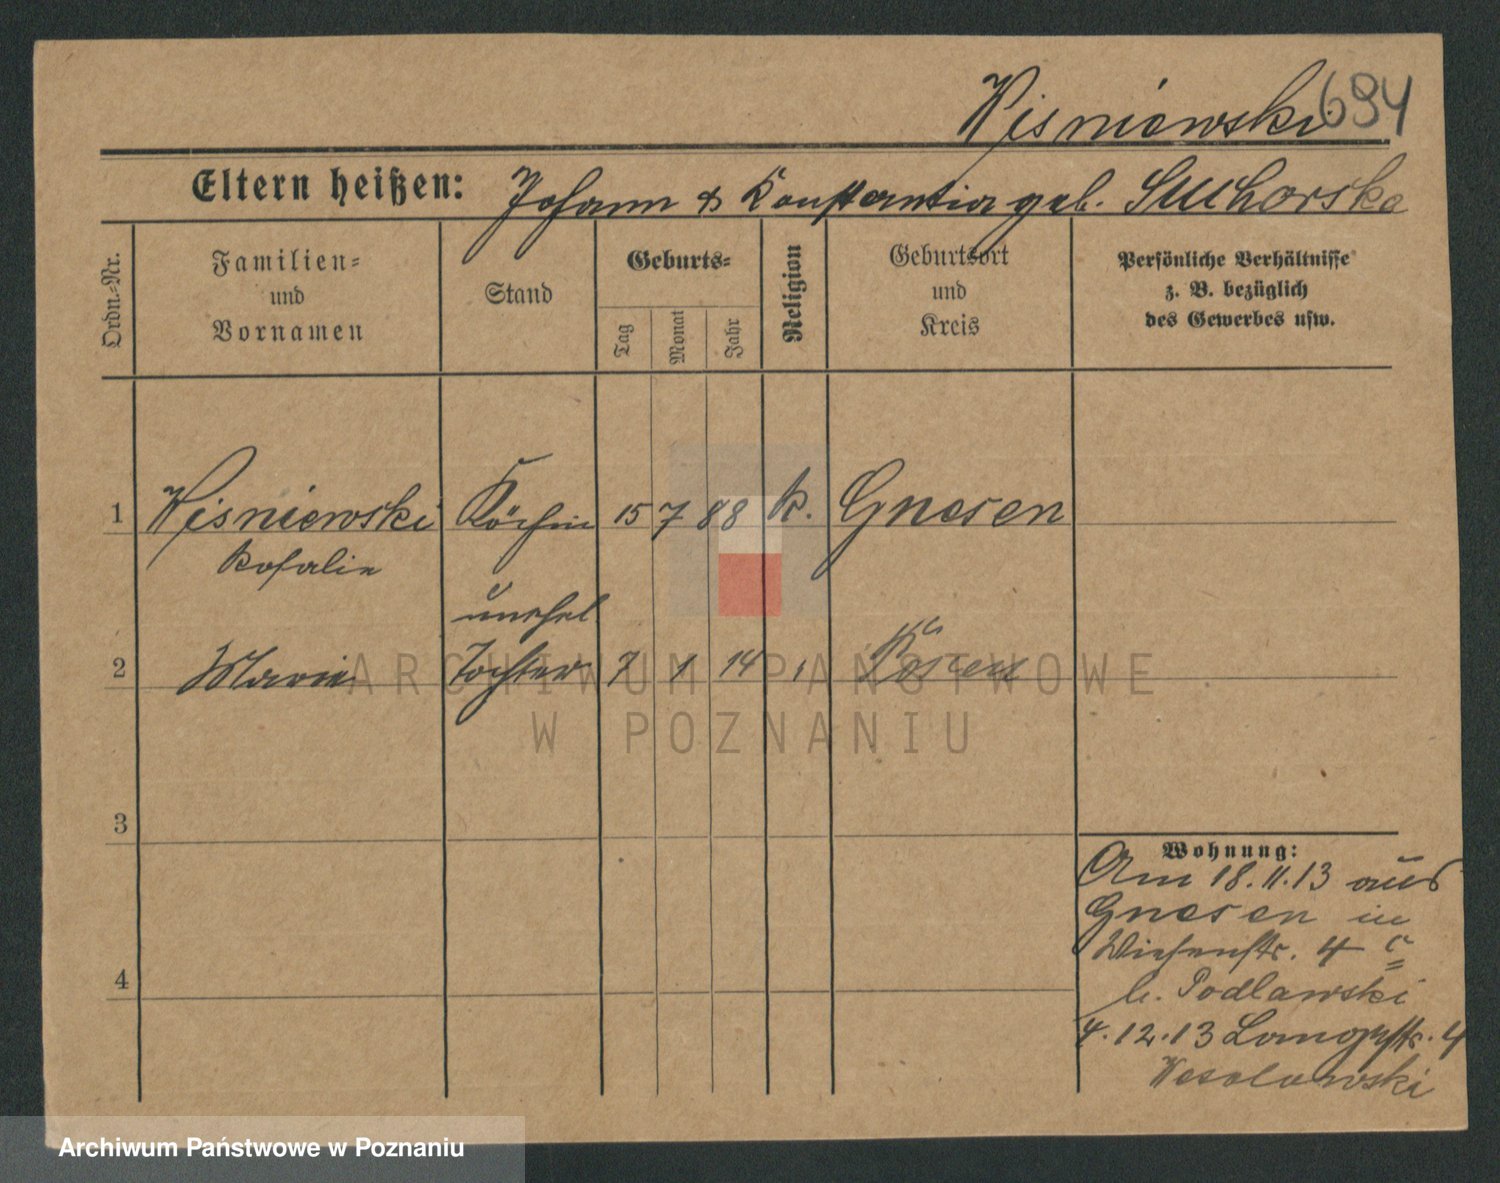 Wisniewski 694
Eltern heißen: Johann & Konstantia geb. Suchorska
Ordn.-Nr.
Familien-
und
Vornamen
Stand
Geburts-
Tag
Monat
Jahr
Religion
Geburtsort
und
Kreis
Persönliche Verhältnisse
z. B. bezüglich
des Gewerbes usw.
1 Wisniewski Köchin 15 7 88 k. Gnesen
Rosalie
unehel
2 Maria Tochter 7 1 14 " Posen
3
4
Wohnung:
Am 18.11.13 aus
Gnesen in
Wiesenstr. 4 c
b. Podlawski
4.12.13 Langestr. 4
Wesolowski
ARCHIWUM PAŃSTWOWE
W POZNANIU
Archiwum Państwowe w Poznaniu